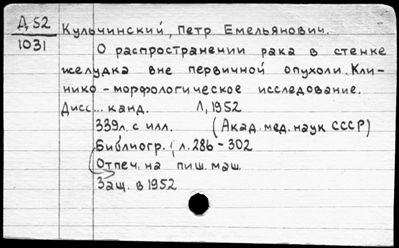 Д 52
1031
Кульчинский, Петр Емельянович.
О распространении рака в стенке
желудка вне первичной опухоли. Кли-
нико-морфологическое исследование.
Дисс... канд. Л, 1952
339л. с илл. (Акад. мед. наук СССР)
Библиогр.: л. 286-302
Отпеч. на пиш. маш.
Защ. в 1952